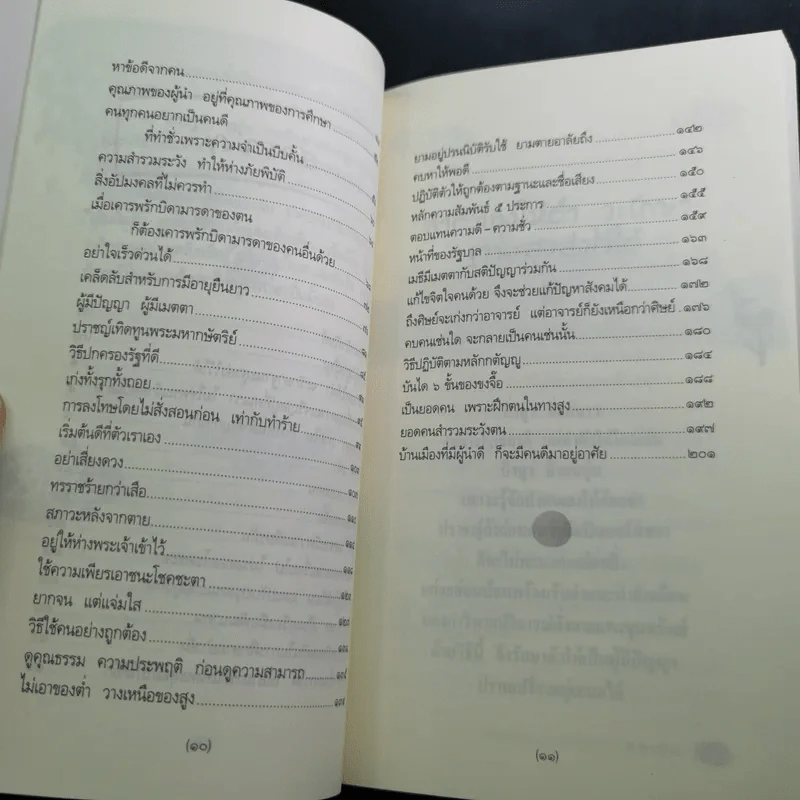 หาข้อดีจากคน
คุณภาพของผู้นำ อยู่ที่คุณภาพของการศึกษา
คนทุกคนอยากเป็นคนดี
ที่ทำชั่วเพราะความจำเป็นบีบคั้น
ความสำรวมระวัง ทำให้ห่างภัยพิบัติ
สิ่งอัปมงคลที่ไม่ควรทำ
เมื่อเคารพรักบิดามารดาของตน
ก็ต้องเคารพรักบิดามารดาของคนอื่นด้วย
อย่าใจเร็วด่วนได้
เคล็ดลับสำหรับการมีอายุยืนยาว
ผู้มีปัญญา ผู้มีเมตตา
ปราชญ์เทิดทูนพระมหากษัตริย์
วิธีปกครองรัฐที่ดี
เก่งทั้งรุกทั้งถอย
การลงโทษโดยไม่สั่งสอนก่อน เท่ากับทำร้าย
เริ่มต้นดีที่ตัวเราเอง
อย่าเสี่ยงดวง
ทรราชร้ายกว่าเสือ
สภาวะหลังจากตาย
อยู่ให้ห่างพระเจ้าเข้าไว้
ใช้ความเพียรเอาชนะโชคชะตา
ยากจน แต่แจ่มใส
วิธีใช้คนอย่างถูกต้อง
ดูคุณธรรม ความประพฤติ ก่อนดูความสามารถ
ไม่เอาของต่ำ วางเหนือของสูง
(๑๐)
ยามอยู่ปรนนิบัติรับใช้ ยามตายอาลัยถึง ๑๔๒
คบหาให้พอดี ๑๔๖
ปฏิบัติตัวให้ถูกต้องตามฐานะและชื่อเสียง ๑๕๐
หลักความสัมพันธ์ ๕ ประการ ๑๕๕
ตอบแทนความดี - ความชั่ว ๑๕๙
หน้าที่ของรัฐบาล ๑๖๓
เมธีมีเมตตากับสติปัญญาร่วมกัน ๑๖๘
แก้ไขจิตใจคนด้วย จึงจะช่วยแก้ปัญหาสังคมได้ ๑๗๒
ถึงศิษย์จะเก่งกว่าอาจารย์ แต่อาจารย์ก็ยังเหนือกว่าศิษย์ ๑๗๖
คบคนเช่นใด จะกลายเป็นคนเช่นนั้น ๑๘๐
วิธีปฏิบัติตามหลักกตัญญู ๑๘๔
บันได ๖ ขั้นของขงจื๊อ ๑๘๘
เป็นยอดคน เพราะฝึกตนในทางสูง ๑๙๒
ยอดคนสำรวมระวังตน ๑๙๗
บ้านเมืองที่มีผู้นำดี ก็จะมีคนดีมาอยู่อาศัย ๒๐๑
(๑๑)